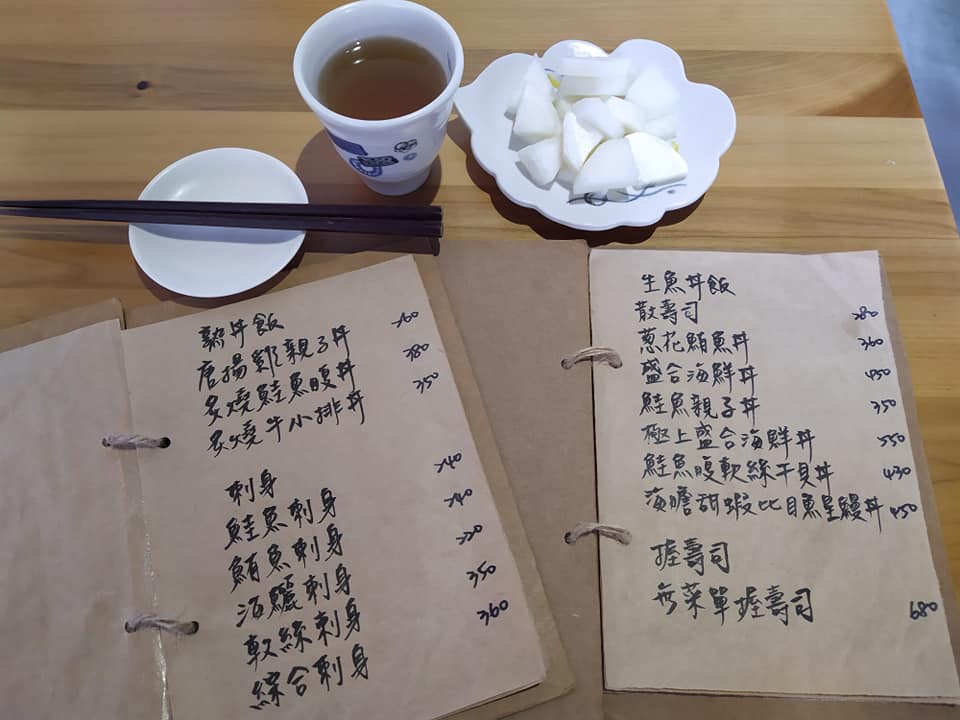 熟丼飯
唐揚雞親子丼 260
炙燒鮭魚腹丼 280
炙燒牛小排丼 350
刺身
鮭魚刺身 240
鮪魚刺身 240
海鱺刺身 220
軟絲刺身 350
綜合刺身 360
生魚丼飯
散壽司 280
蔥花鮪魚丼 360
盛合海鮮丼 450
鮭魚親子丼 350
極上盛合海鮮丼 550
鮭魚腹軟絲干貝丼 430
海膽甜蝦比目魚星鰻丼 450
握壽司
无菜單握壽司 680